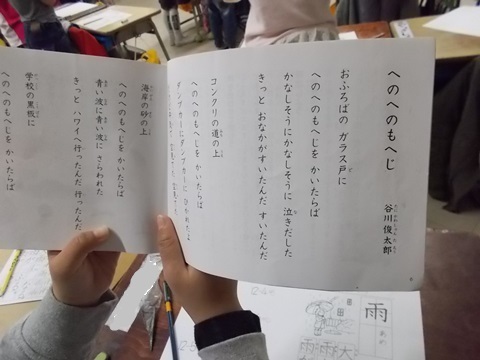 へのへのもへじ
谷川俊太郎
おふろばの ガラス戸に
へのへのもへじを かいたらば
かなしそうにかなしそうに 泣きだした
きっと おなかがすいたんだ すいたんだ
コンクリの道の上
へのへのもへじを かいたらば
ダンプカーにダンプカーに ひかれたよ
海岸の砂の上
へのへのもへじを かいたらば
青い波に青い波に さらわれた
きっと ハワイへ行ったんだ 行ったんだ
学校の黒板に
へのへのもへじを かいたらば
雨
あめ